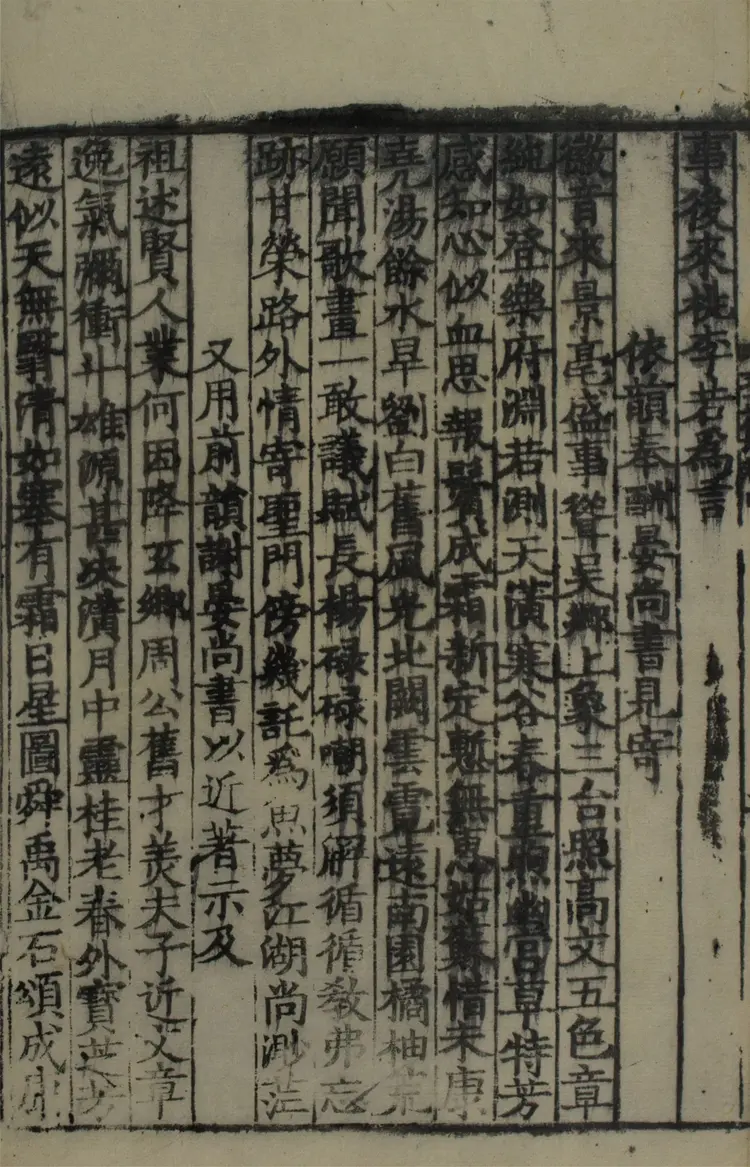 事後來桃李若為言
依韻奉酬晏尚書見寄
徽音來景亳盛事聳吳鄉上象三台照高文五色章
純如登樂府淵若測天潢寒谷春重照幽宮草特芳
感知心似血思報鬢成霜新定慙無惠姑蘇惜未康
堯湯餘水旱劉白舊風光北闕雲霓遠南園橘柚荒
願聞歌畫一敢議賦長楊碌碌嘲須解循循教弗忘
跡甘榮路外情寄聖門傍幾託為魚夢江湖尚渺茫
又用前韻謝晏尚書以近著示及
祖述賢人業何因降互鄉周公舊才美夫子近文章
逸氣彌衝斗雄源甚决潢月中靈桂老春外寶芝芳
遠似天無翳清如塞有霜日星圖舜禹金石頌成康